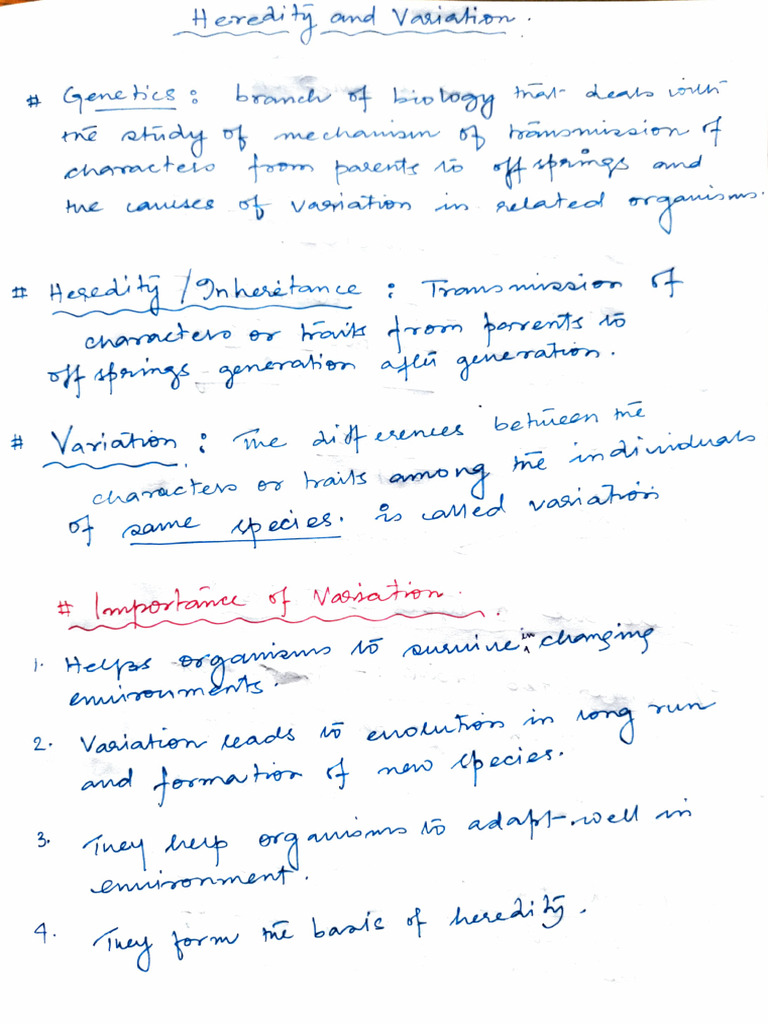 Heredity and Variation.
# Genetics: branch of biology that deals with
the study of mechanism of transmission of
characters from parents to off springs and
the causes of variation in related organisms.
# Heredity/Inheritance: Transmission of
characters or traits from parents to
off springs generation after generation.
# Variation: The differences between the
characters or traits among the individuals
of same species. is called variation
# Importance of Variation.
1. Helps organisms to survive in changing
environments.
2. Variation leads to evolution in long run
and formation of new species.
3. They help organisms to adapt well in
environment.
4. They form the basis of heredity.